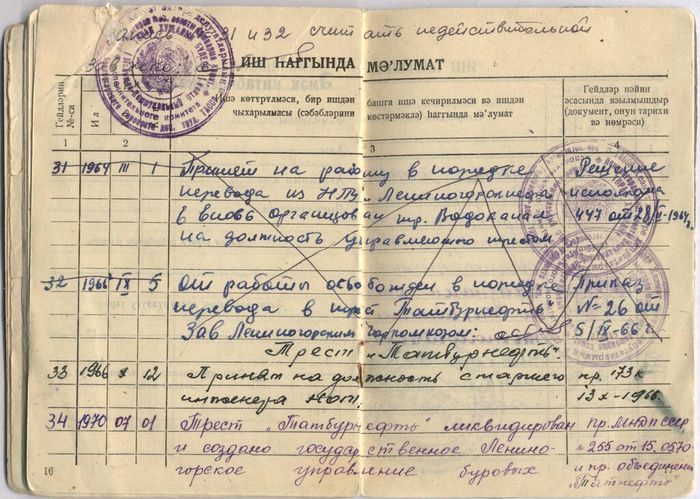 Записи 31 и 32 считать недействительной
ИШ ҺАГГЫНДА МӘ'ЛУМАТ
Гейдләрин №-си
Ил
ишә көтүрүлмәси, бир ишдән
чыхарылмасы (сәбәбләрини
башга ишә кечирилмәси вә ишдән
көстәрмәклә) һаггында мә'лумат
Гейдләр нәйин
әсасында язылмышдыр
(документ, онун тарихи
вә нөмрәси)
1 2 3 4
31 1964 III 1 Принят на работу в порядке Решение
перевода из НПУ „Лениногорскнефть исполкома
в вновь организован. тр. Водоканал 447 от 28/II-1964г.
на должность управляющего трестом
32 1966 IX 5 От работы освобожден в порядке Приказ
перевода в трест Татбурнефть №26 от
Зав Лениногорским горкомхозом: 5/IX-66 г
Трест „Татбурнефть".
33 1966 X 12 Принят на должность старшего пр. 173к
инженера НОТ. 13 X-1966.
34 1970 07 01 Трест „Татбурнефть" ликвидирован пр. МНДП СССР
и создано государственное Ленино- №255 от 15.05.70
горское управление буровых и пр. объединен
„Татнефть"
16